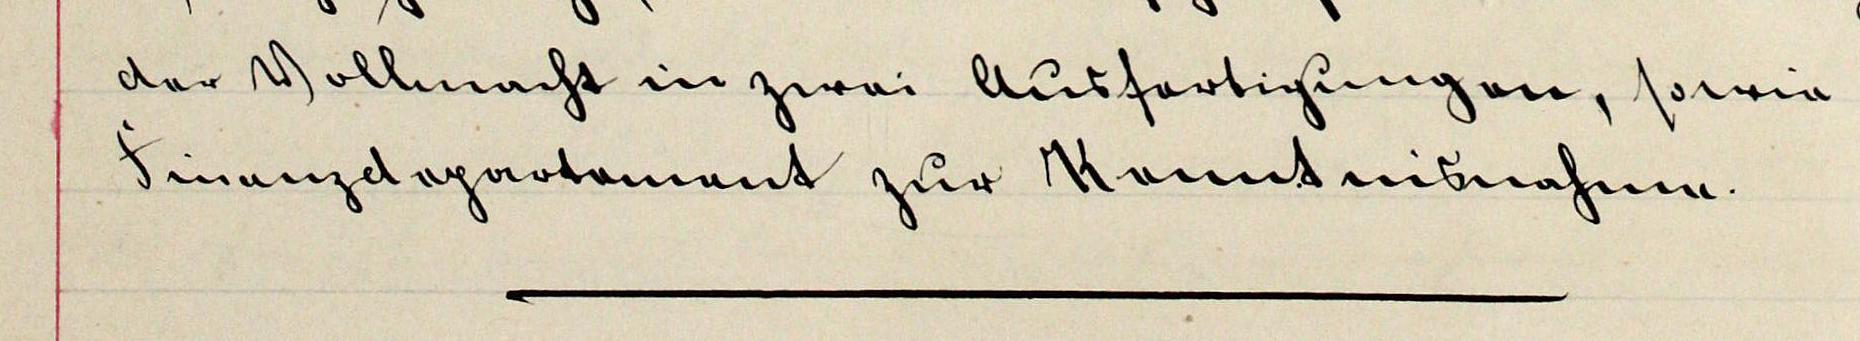 der Vollmacht in zwei Ausfertigungen, sowie
Finanzdepartement zur Kenntnisnahme.